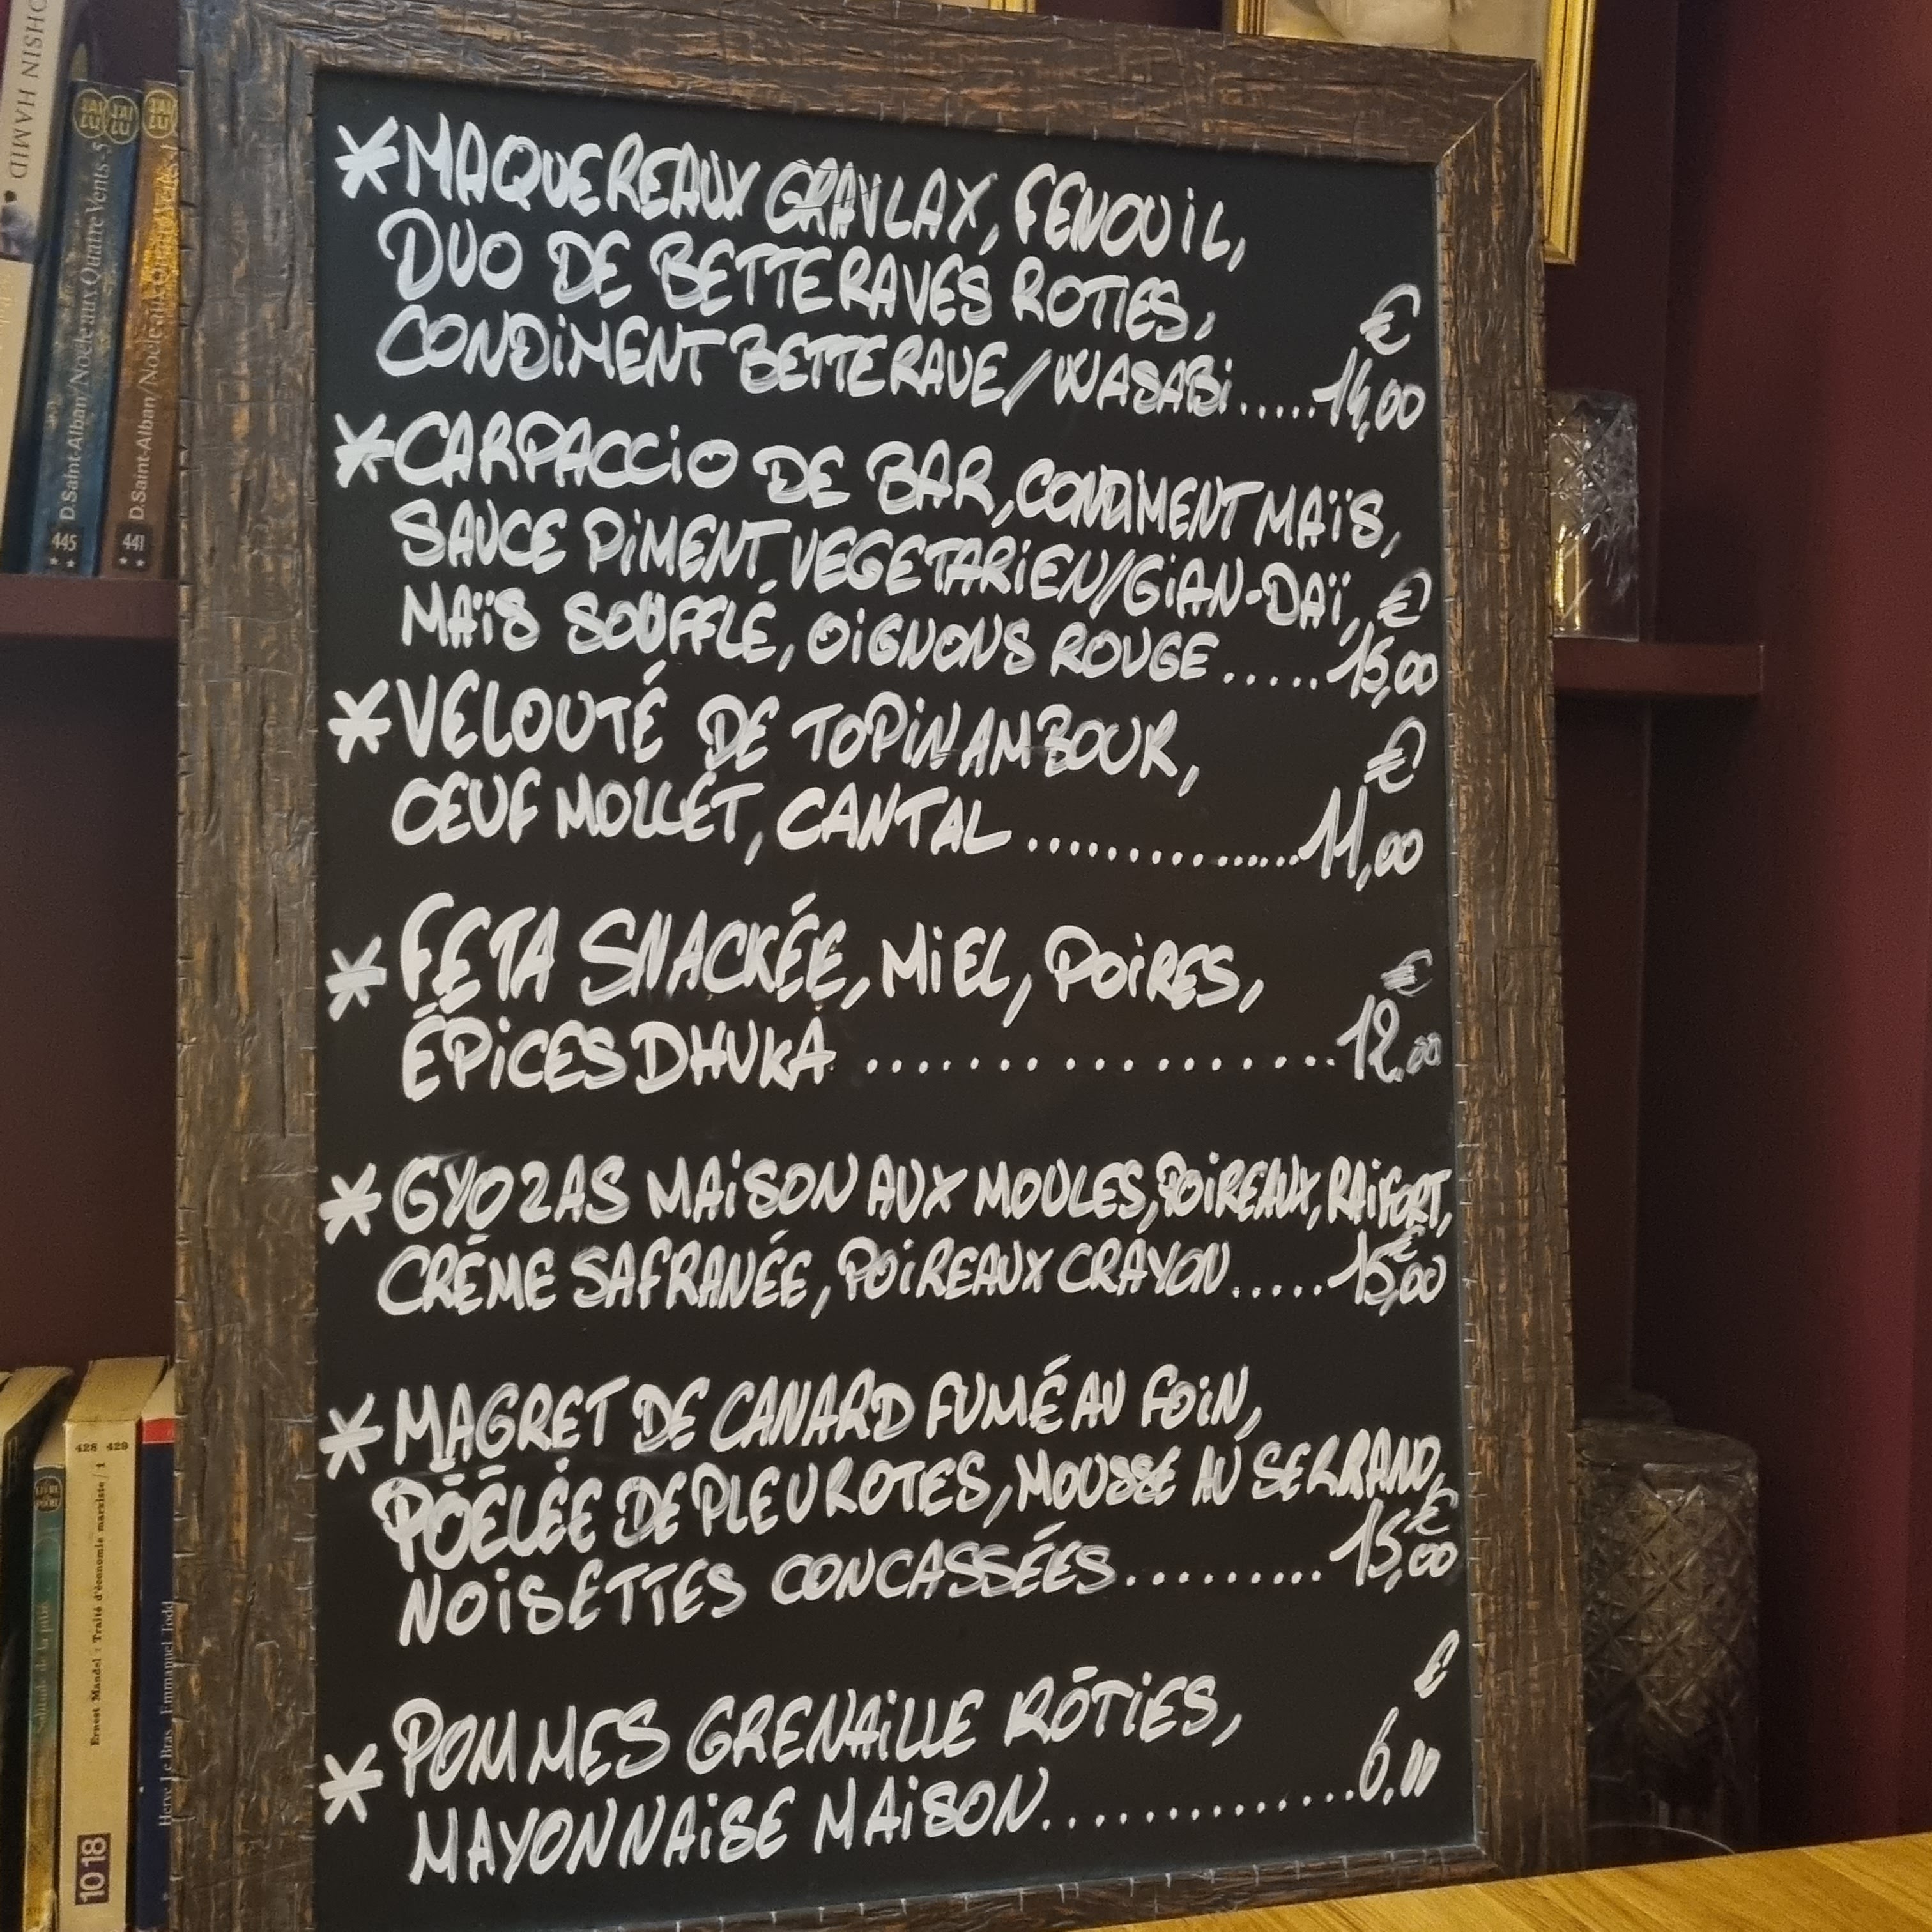 *MAQUEREAUX GRAVLAX, FENOUIL,
DUO DE BETTERAVES ROTIES,
CONDIMENT BETTERAVE/WASABI.....14,00
€
*CARPACCIO DE BAR, CONDIMENT MAÏS,
SAUCE PIMENT VEGETARIEN/GIAN-DAÏ,
MAÏS SOUFFLÉ, OIGNONS ROUGE.....15,00
€
*VELOUTÉ DE TOPINAMBOUR,
OEUF MOLLET, CANTAL................11,00
€
*FETA SNACKÉE, MIEL, POIRES,
ÉPICES DHUKA ..................12.00
€
*GYOZAS MAISON AUX MOULES, POIREAUX, RAIFORT,
CRÈME SAFRANÉE, POIREAUX CRAYON.....15,00
€
*MAGRET DE CANARD FUMÉ AU FOIN,
POÊLÉE DE PLEUROTES, MOUSSE AU SERRANO,
NOISETTES CONCASSÉES.........15,00
€
*POMMES GRENAILLE RÔTIES,
MAYONNAISE MAISON..............6,00
€
OHSIN HAMID
J'AI LU
J'AI LU
J'AI LU
D. Saint-Alban/Noël aux Quatre Vents-5
445
**
D. Saint-Alban/Noël aux Quatre Vents
441
**
428 429
Ernest Mandel : Traité d'économie marxiste/1
10 18
LIVRE DE POCHE
Hervé Le Bras Emmanuel Todd